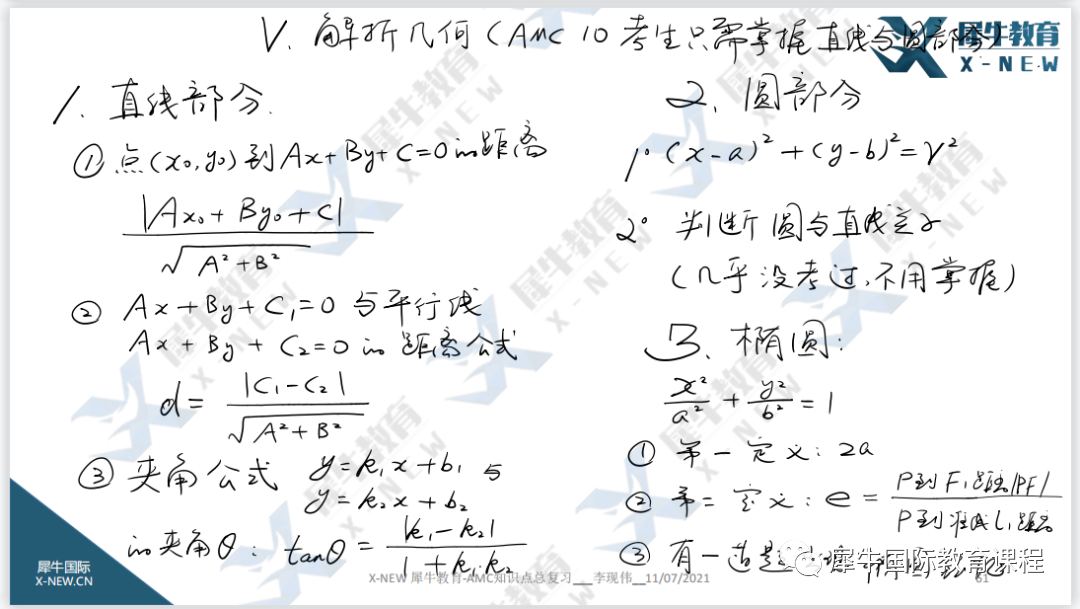 V. 解析几何(AMC 10 考生只需掌握直线与圆部分)
犀牛教育
X-NEW
1. 直线部分.
① 点(x₀,y₀)到Ax+By+C=0的距离
|Ax₀+By₀+C|
√A²+B²
② Ax+By+C₁=0与平行线
Ax+By+C₂=0的距离公式
d= |C₁-C₂|
√A²+B²
③ 夹角公式 y=k₁x+b₁与
y=k₂x+b₂
的夹角θ: tanθ= |k₁-k₂|
1+k₁k₂
2. 圆部分
1° (x-a)²+(y-b)²=r²
2° 判断圆与直线
(几乎没考过,不用掌握)
3. 椭圆:
x²/a² + y²/b² =1
① 第一定义: 2a
② 第二定义: e= P到F₁距离|PF₁|
P到准线L₁距离
③ 有一道题
犀牛国际教育课程
犀牛国际
X-NEW.CN
X-NEW 犀牛教育-AMC知识点总复习___李现伟__11/07/2021
61